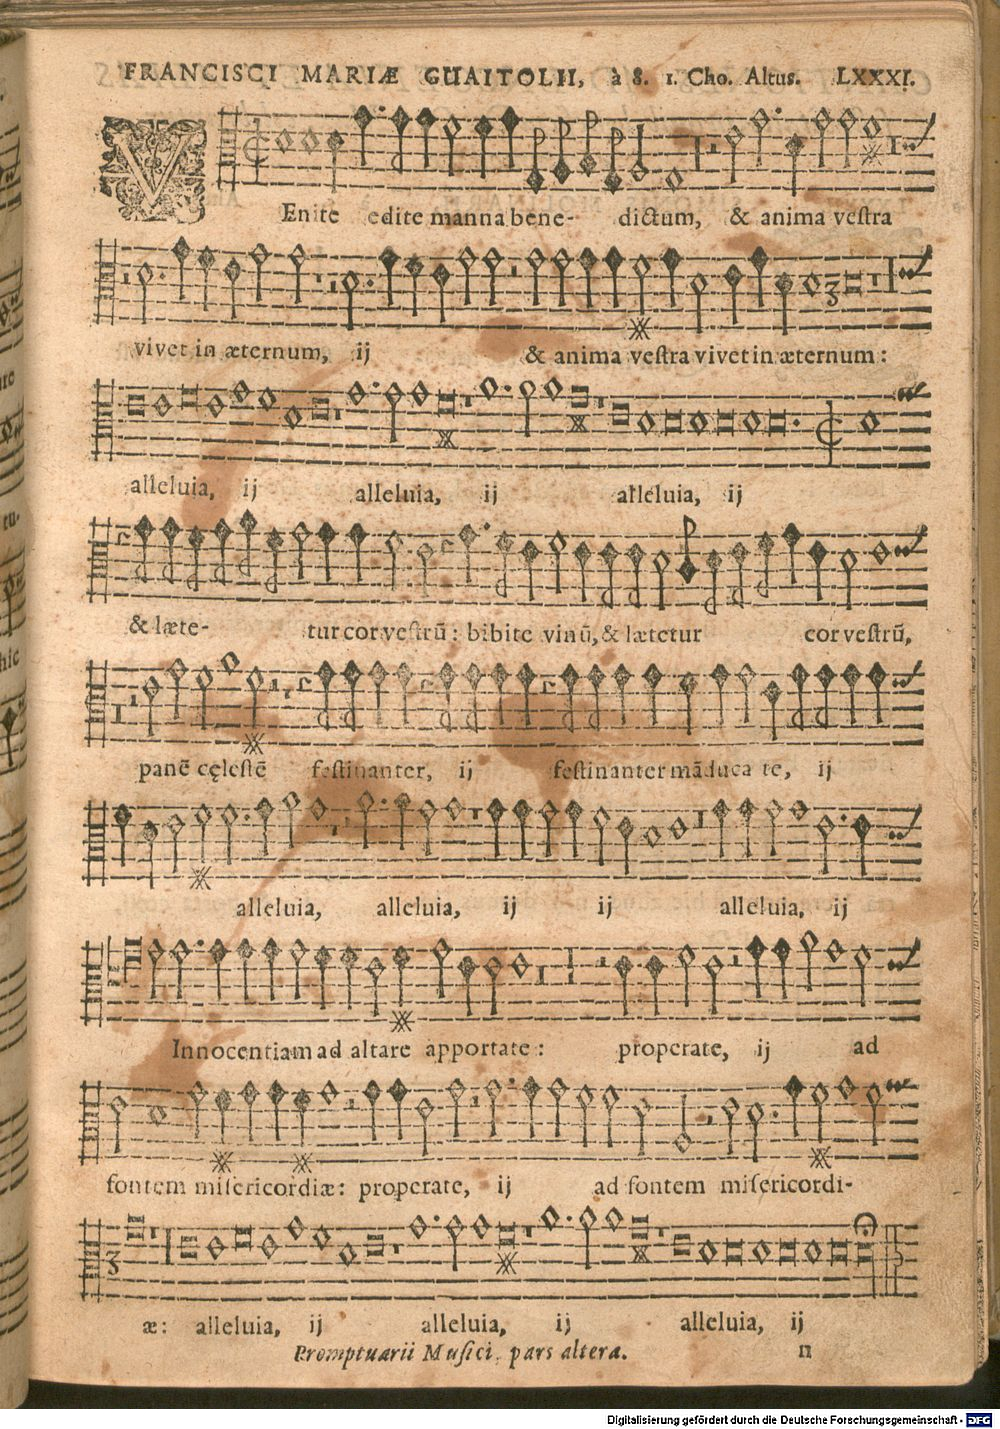 FRANCISCI MARIÆ GUAITOLII, à 8. 1. Cho. Altus. LXXXI.
VEnite edite manna bene- dictum, & anima vestra
vivet in æternum, ij & anima vestra vivet in æternum:
alleluia, ij alleluia, ij alleluia, ij
& læte- tur cor vestrũ: bibite vinũ, & lætetur cor vestrũ,
panẽ cęlestẽ festinanter, ij festinanter mãduca te, ij
alleluia, alleluia, ij ij alleluia, ij
Innocentiam ad altare apportate: properate, ij ad
fontem misericordiæ: properate, ij ad fontem misericordi-
æ: alleluia, ij alleluia, ij alleluia, ij
Promptuarii Musici, pars altera. n
Digitalisierung gefördert durch die Deutsche Forschungsgemeinschaft - DFG